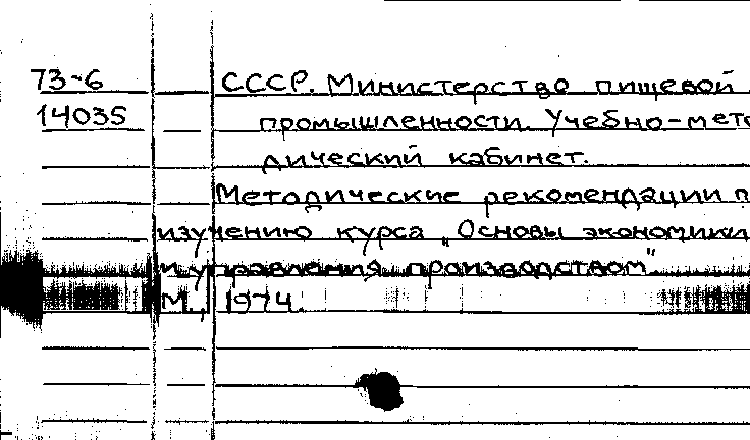 73-6
14035
СССР. Министерство пищевой
промышленности. Учебно-мето
дический кабинет.
Методические рекомендации п
изучению курса „Основы экономики
и управления производством".
М., 1974.